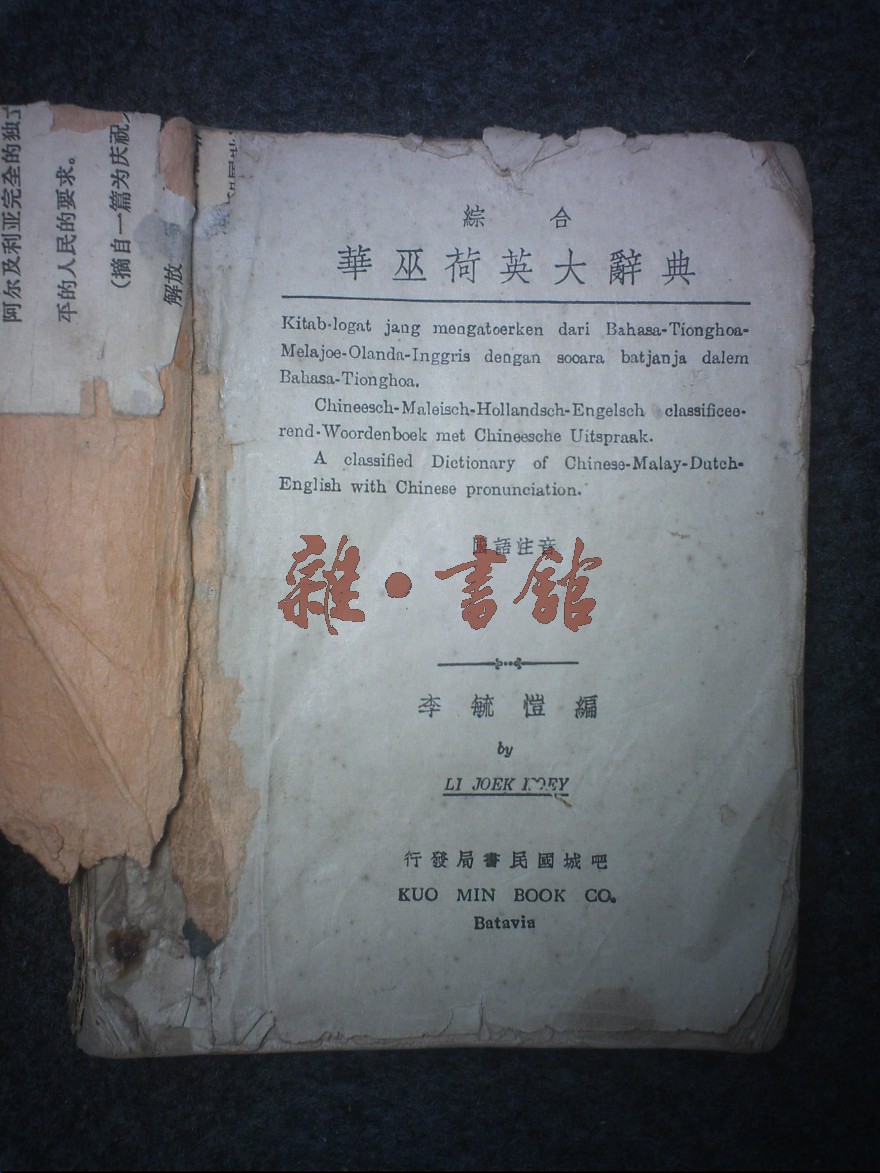 阿尔及利亚完全的独立
平的人民的要求。
(摘自一篇为庆祝
解放
綜合
華巫荷英大辭典
Kitab-logat jang mengatoerken dari Bahasa-Tionghoa-
Melajoe-Olanda-Inggris dengan soeara batjanja dalem
Bahasa-Tionghoa.
Chineesch-Maleisch-Hollandsch-Engelsch classificee-
rend-Woordenboek met Chineesche Uitspraak.
A classified Dictionary of Chinese-Malay-Dutch-
English with Chinese pronunciation.
國語注音
雜·書館
李毓愷編
by
LI JOEK
行發局書民國城吧
KUO MIN BOOK CO.
Batavia